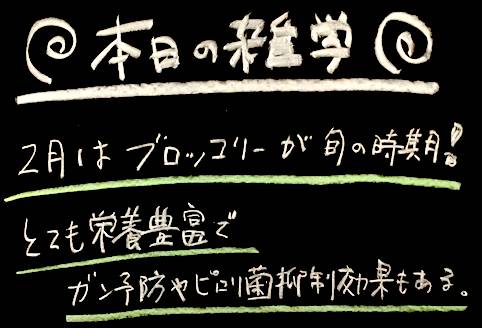 本日の雑学
2月はブロッコリーが旬の時期!
とても栄養豊富で
ガン予防やピロリ菌抑制効果もある。